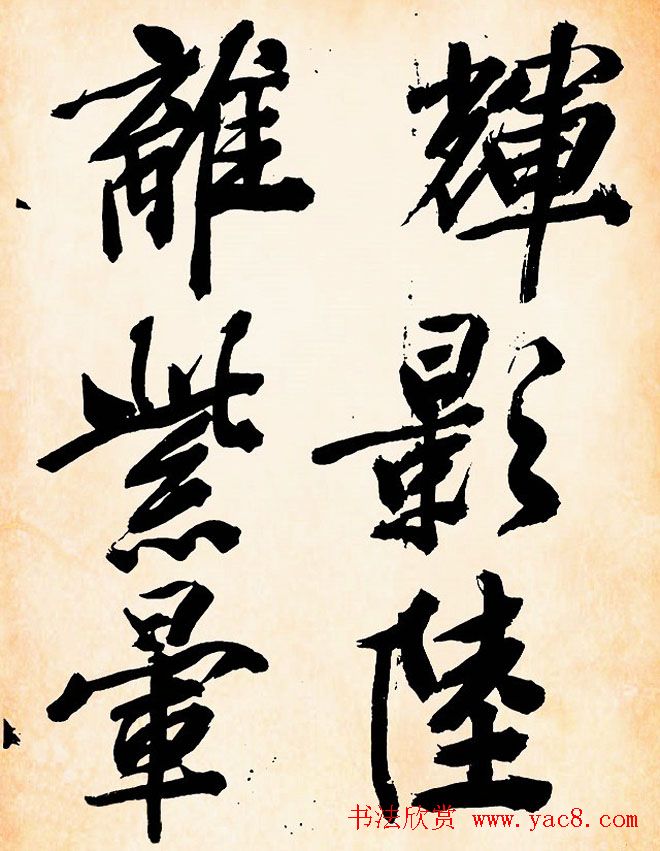 輝影陸
離紫暈
书法欣赏 www.yac8.com